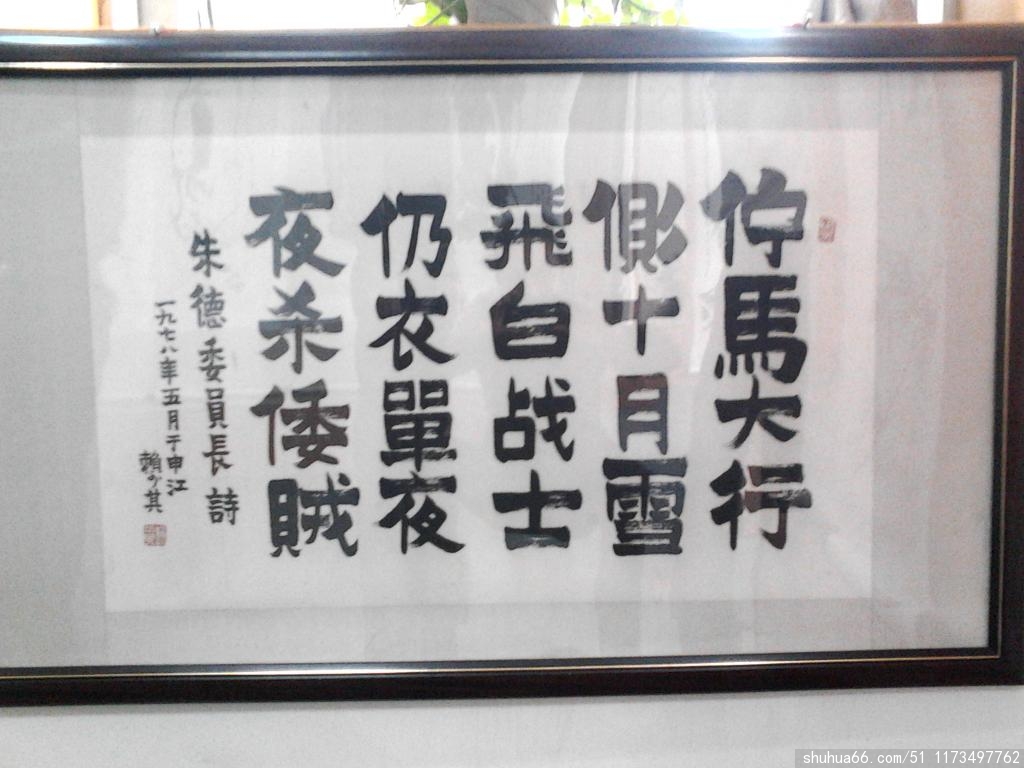 佇馬大行
側十月雪
飛白战士
仍衣單夜
夜杀倭賊
朱德委員長詩
一九七八年五月于申江
賴少其
shuhua66.com/51 1173497762